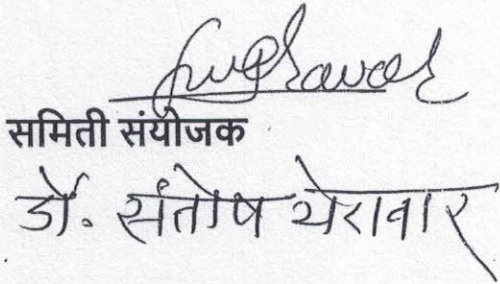 समिती संयोजक
डॉ. संतोष येरावार